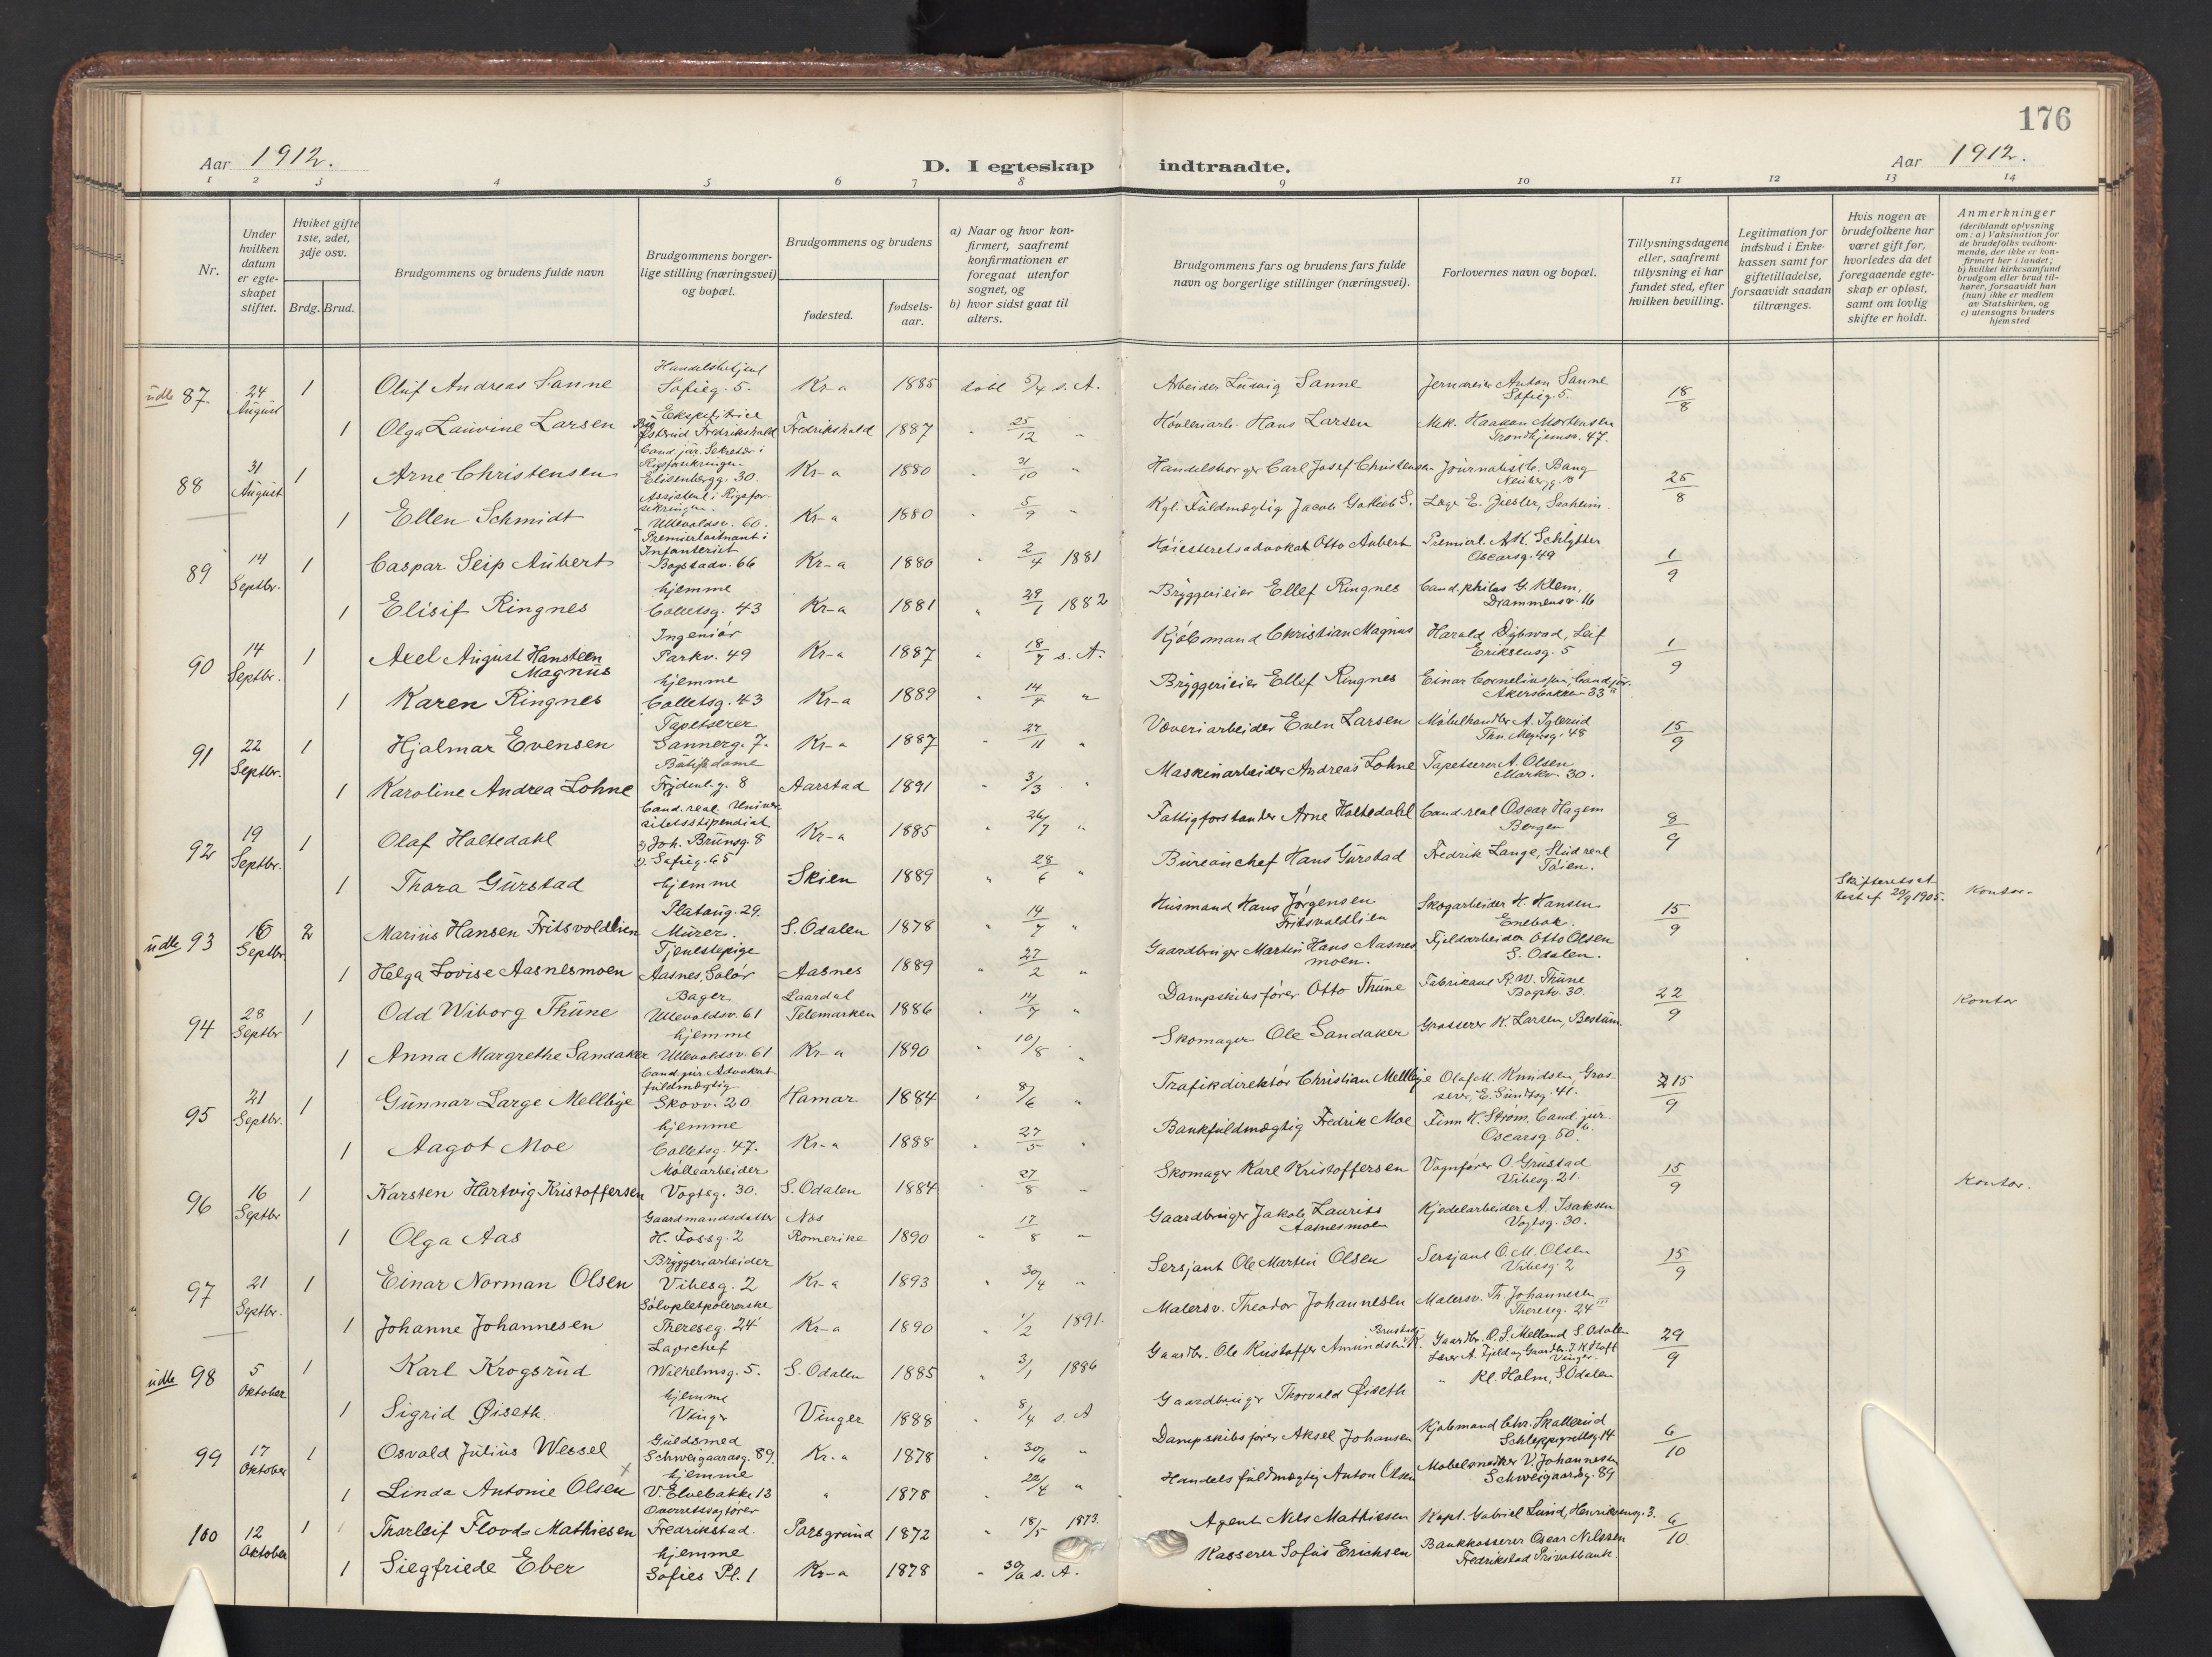 176
Aar 1912.
D. I egteskap indtraadte.
Aar 1912.
1 2 3 4 5 6 7 8 9 10 11 12 13 14
Nr.
Under hvilken datum er egteskapet stiftet.
Hviket gifte 1ste, 2det, 3dje osv.
Brdg. Brud.
Brudgommens og brudens fulde navn
Brudgommens borgerlige stilling (næringsvei) og bopæl.
Brudgommens og brudens
fødested.
fødselsaar.
a) Naar og hvor konfirmert, saafremt konfirmationen er foregaat utenfor sognet, og
b) hvor sidst gaat til alters.
Brudgommens fars og brudens fars fulde navn og borgerlige stillinger (næringsvei).
Forlovernes navn og bopæl.
Tillysningsdagene eller, saafremt tillysning ei har fundet sted, efter hvilken bevilling.
Legitimation for indskud i Enkekassen samt for giftetilladelse, forsaavidt saadan tiltrænges.
Hvis nogen av brudefolkene har været gift før, hvorledes da det foregaaende egteskap er opløst, samt om lovlig skifte er holdt.
Anmerkninger (deriblandt oplysning om: a) Vaksination for de brudefolks vedkommende, der ikke er konfirmert her i landet; b) hvilket kirkesamfund brudgom eller brud tilhører, forsaavidt han (hun) ikke er medlem av Statskirken, og c) utensogns bruders hjemsted
87 24 August 1 Oluf Andreas Sanne Sofieg. 5. Kr-a 1885 5/4 s. A. Arbeider Ludvig Sanne Anton Sanne Sofieg. 5. 18/8
1 Olga Lauvine Larsen Fredrikshald Fredrikshald 1887 25/12 " Høvleriarb. Hans Larsen Mek. Haakon Mortensen Trondhjemsv. 47.
88 31 August 1 Arne Christensen Cand. jur. Sekretær i Rigsforsikringen Elisenbergg. 30. Kr-a 1880 31/10 " Handelsborger Carl Josef Christensen Journalist C. Bang 25/8
1 Ellen Schmidt Assistent i Rigsforsikringen Ullevoldsv. 60. Kr-a 1880 5/9 " Kgl. Fuldmægtig Jacob Gotlieb S. Læge E. Ziesler, Saaheim.
89 14 Septbr. 1 Caspar Seip Aubert Premierløitnant i Infanteriet Bogstadv. 66 Kr-a 1880 2/4 1881 Høiesteretsadvokat Otto Aubert Premierl. A. K. Schlytter Oscarsg. 49 1/9
1 Elisif Ringnes hjemme Colletsg. 43 Kr-a 1881 29/1 1882 Bryggerieier Ellef Ringnes Cand. philos G. Klem, Drammensv. 16
90 14 Septbr. 1 Axel August Hansteen Magnus Ingeniør Parkv. 49 Kr-a 1887 18/7 s. A. Kjøbmand Christian Magnus Harald Dybwad, Leif Eriksensg. 5 1/9
1 Karen Ringnes hjemme Colletsg. 43 Kr-a 1889 14/7 " Bryggerieier Ellef Ringnes Einar Corneliussen, Cand. jur. Akersbakken 33
91 22 Septbr. 1 Hjalmar Evensen Tapetserer Sannerg. 7. Kr-a 1887 27/11 " Væveriarbeider Even Larsen Møbelhandler A. Iglerud Thv. Meyersg. 48 15/9
1 Karoline Andrea Lohne Butikdame Aarstad 1891 3/3 " Maskinarbeider Andreas Lohne Tapetserer A. Olsen Markv. 30.
92 19 Septbr. 1 Olaf Holtedahl Cand. real. Universitetsstipendiat Joh. Brunsg. 8 Sofieg. 65 Kr-a 1885 26/7 " Fattigforstander Arne Holtedahl Cand. real Oscar Hagem Bergen 8/9
1 Thora Gurstad hjemme Skien 1889 28/6 " Bureauchef Hans Gurstad Fredrik Lange, Stud real Tøien.
93 16 Septbr. 2 Marius Hansen Fritsvoldlien Platoug. 29. Murer. S. Odalen 1878 14/7 " Husmand Hans Jørgensen Fritsvoldlien Skogarbeider H. Hansen Enebak. 15/9 Skifteretsattest af 20/9 1905. Kontor.
1 Helga Lovise Aasnesmoen Tjenestepige Aasnes, Solør Aasnes 1889 27/2 " Gaardbruger Martin Hans Aasnesmoen. Fjeldarbeider Otto Olsen S. Odalen.
94 28 Septbr 1 Odd Wiborg Thune Bager Ullevoldsv. 61 Laardal Telemarken 1886 14/7 " Dampskibsfører Otto Thune Fabrikant R. W. Thune Bogstv. 30. 22/9 Kontor
1 Anna Margrethe Sandaker hjemme Ullevoldsv. 61 Kr-a 1890 10/8 " Skomager Ole Sandaker Grosserer K. Larsen, Bestum.
95 21 Septbr. 1 Gunnar Large Mellbye Cand. jur. Advokatfuldmægtig Skovv. 20 Hamar 1884 8/6 " Trafikdirektør Christian Mellbye Olaf M. Knudsen, Grosserer, E. Sundtsg. 41. 15/9
1 Aagot Moe hjemme Colletsg. 47. Kr-a 1888 27/5 " Bankfuldmægtig Fredrik Moe Finn K. Strøm, Cand. jur. Oscarsg. 50
96 16 Septbr 1 Karsten Hartvig Kristoffersen Møllearbeider Vogtsg. 30. S. Odalen 1884 27/8 " Skomager Karl Kristoffersen Vognfører O. Grustad Vibesg. 21. 15/9 Kontor.
1 Olga Aas Gaardmandsdatter H. Fossg. 2 Nes Romerike 1890 17/8 " Gaardbruger Jakob Laurits Aasnesmoen Kjedelarbeider A. Isaksen Vogtsg. 30.
97 21 Septbr. 1 Einar Norman Olsen Bryggeriarbeider Vibesg. 2 Kr-a 1893 30/4 " Sersjant Ole Martin Olsen Sersjant O. M. Olsen Vibesg. 2 15/9
1 Johanne Johannesen Sølvpletpolererske Thereseg. 24 Kr-a 1890 1/2 1891. Malersv. Theodor Johannesen Malersv. Th. Johannesen Thereseg. 24 III
98 5 Oktober 1 Karl Krogsrud Wilhelmsg. 5. S. Odalen 1885 3/1 1886 Gaardbr. Ole Kristoffer Amundsen Gaardbr. O. S. Melland S. Odalen 29/9
1 Sigrid Øiseth. hjemme Vinger Vinger 1888 8/4 s. A Gaardbruger Thorvald Øiseth Kl. Holm, S. Odalen
99 17 Oktober 1 Osvald Julius Wessel Guldsmed Schweigaardsg. 89. Kr-a 1878 30/6 " Dampskibsfører Aksel Johansen Kjøbmand Chr. Skallerud Schleppegrellsg. 14 6/10
1 Linda Antonie Olsen hjemme V. Elvebakke 13 " 1878 22/4 " Handelsfuldmægtig Anton Olsen Møbelsnedker V. Johannesen Schweigaardsg. 89
100 12 Oktober 1 Thorleif Floods Mathiesen Overretssagfører Fredrikstad. Porsgrund 1872 18/5 1873. Agent Nils Mathiesen Kapt. Gabriel Lund, Henriksensg. 3. 6/10
1 Siegfriede Eber hjemme Sofies Pl. 1 Kr-a 1878 s. A. Kasserer Sofus Erichsen Bankkasserer Oscar Nilssen Fredrikstad Privatbank.